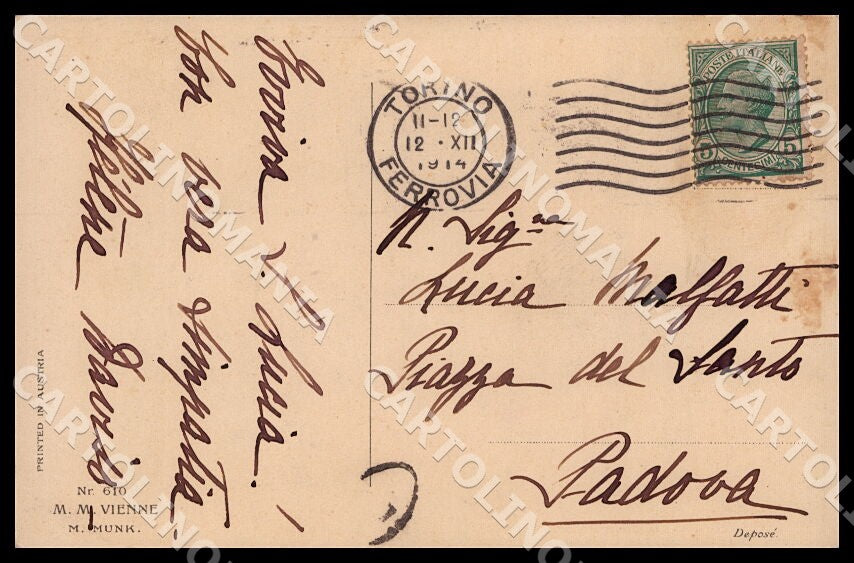 Evviva S. Lucia!
Con vera simpatia
Hélène
TORINO
11-12
12 · XII
1914
FERROVIA
POSTE ITALIANE
5 CENTESIMI 5
N. Sig.na
Lucia Malfatti
Piazza del Santo
Padova
PRINTED IN AUSTRIA
Nr. 610
M. M. VIENNE
M. MUNK.
Deposé.
CARTOLINOMANIA